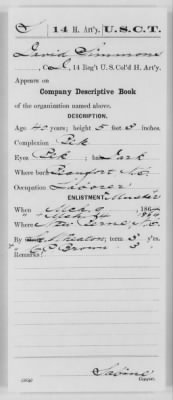 S 14 H. Art'y, U.S.C.T.
David Simmons
, Co. I, 14 Reg't U.S. Col'd H. Art'y.
Appears on
Company Descriptive Book
of the organization named above.
DESCRIPTION.
Age 40 years; height 5 feet 3 inches.
Complexion Blk
Eyes Blk; hair Dark
Where born Beaufort N.C.
Occupation Laborer
ENLISTMENT. Muster
When Mch 9, 1864
" Mch 24 1864
Where New Berne, N.C.
By Wheaton; term 3 y'rs.
" Brown 3 "
Remarks:
Sabine
Copyist.